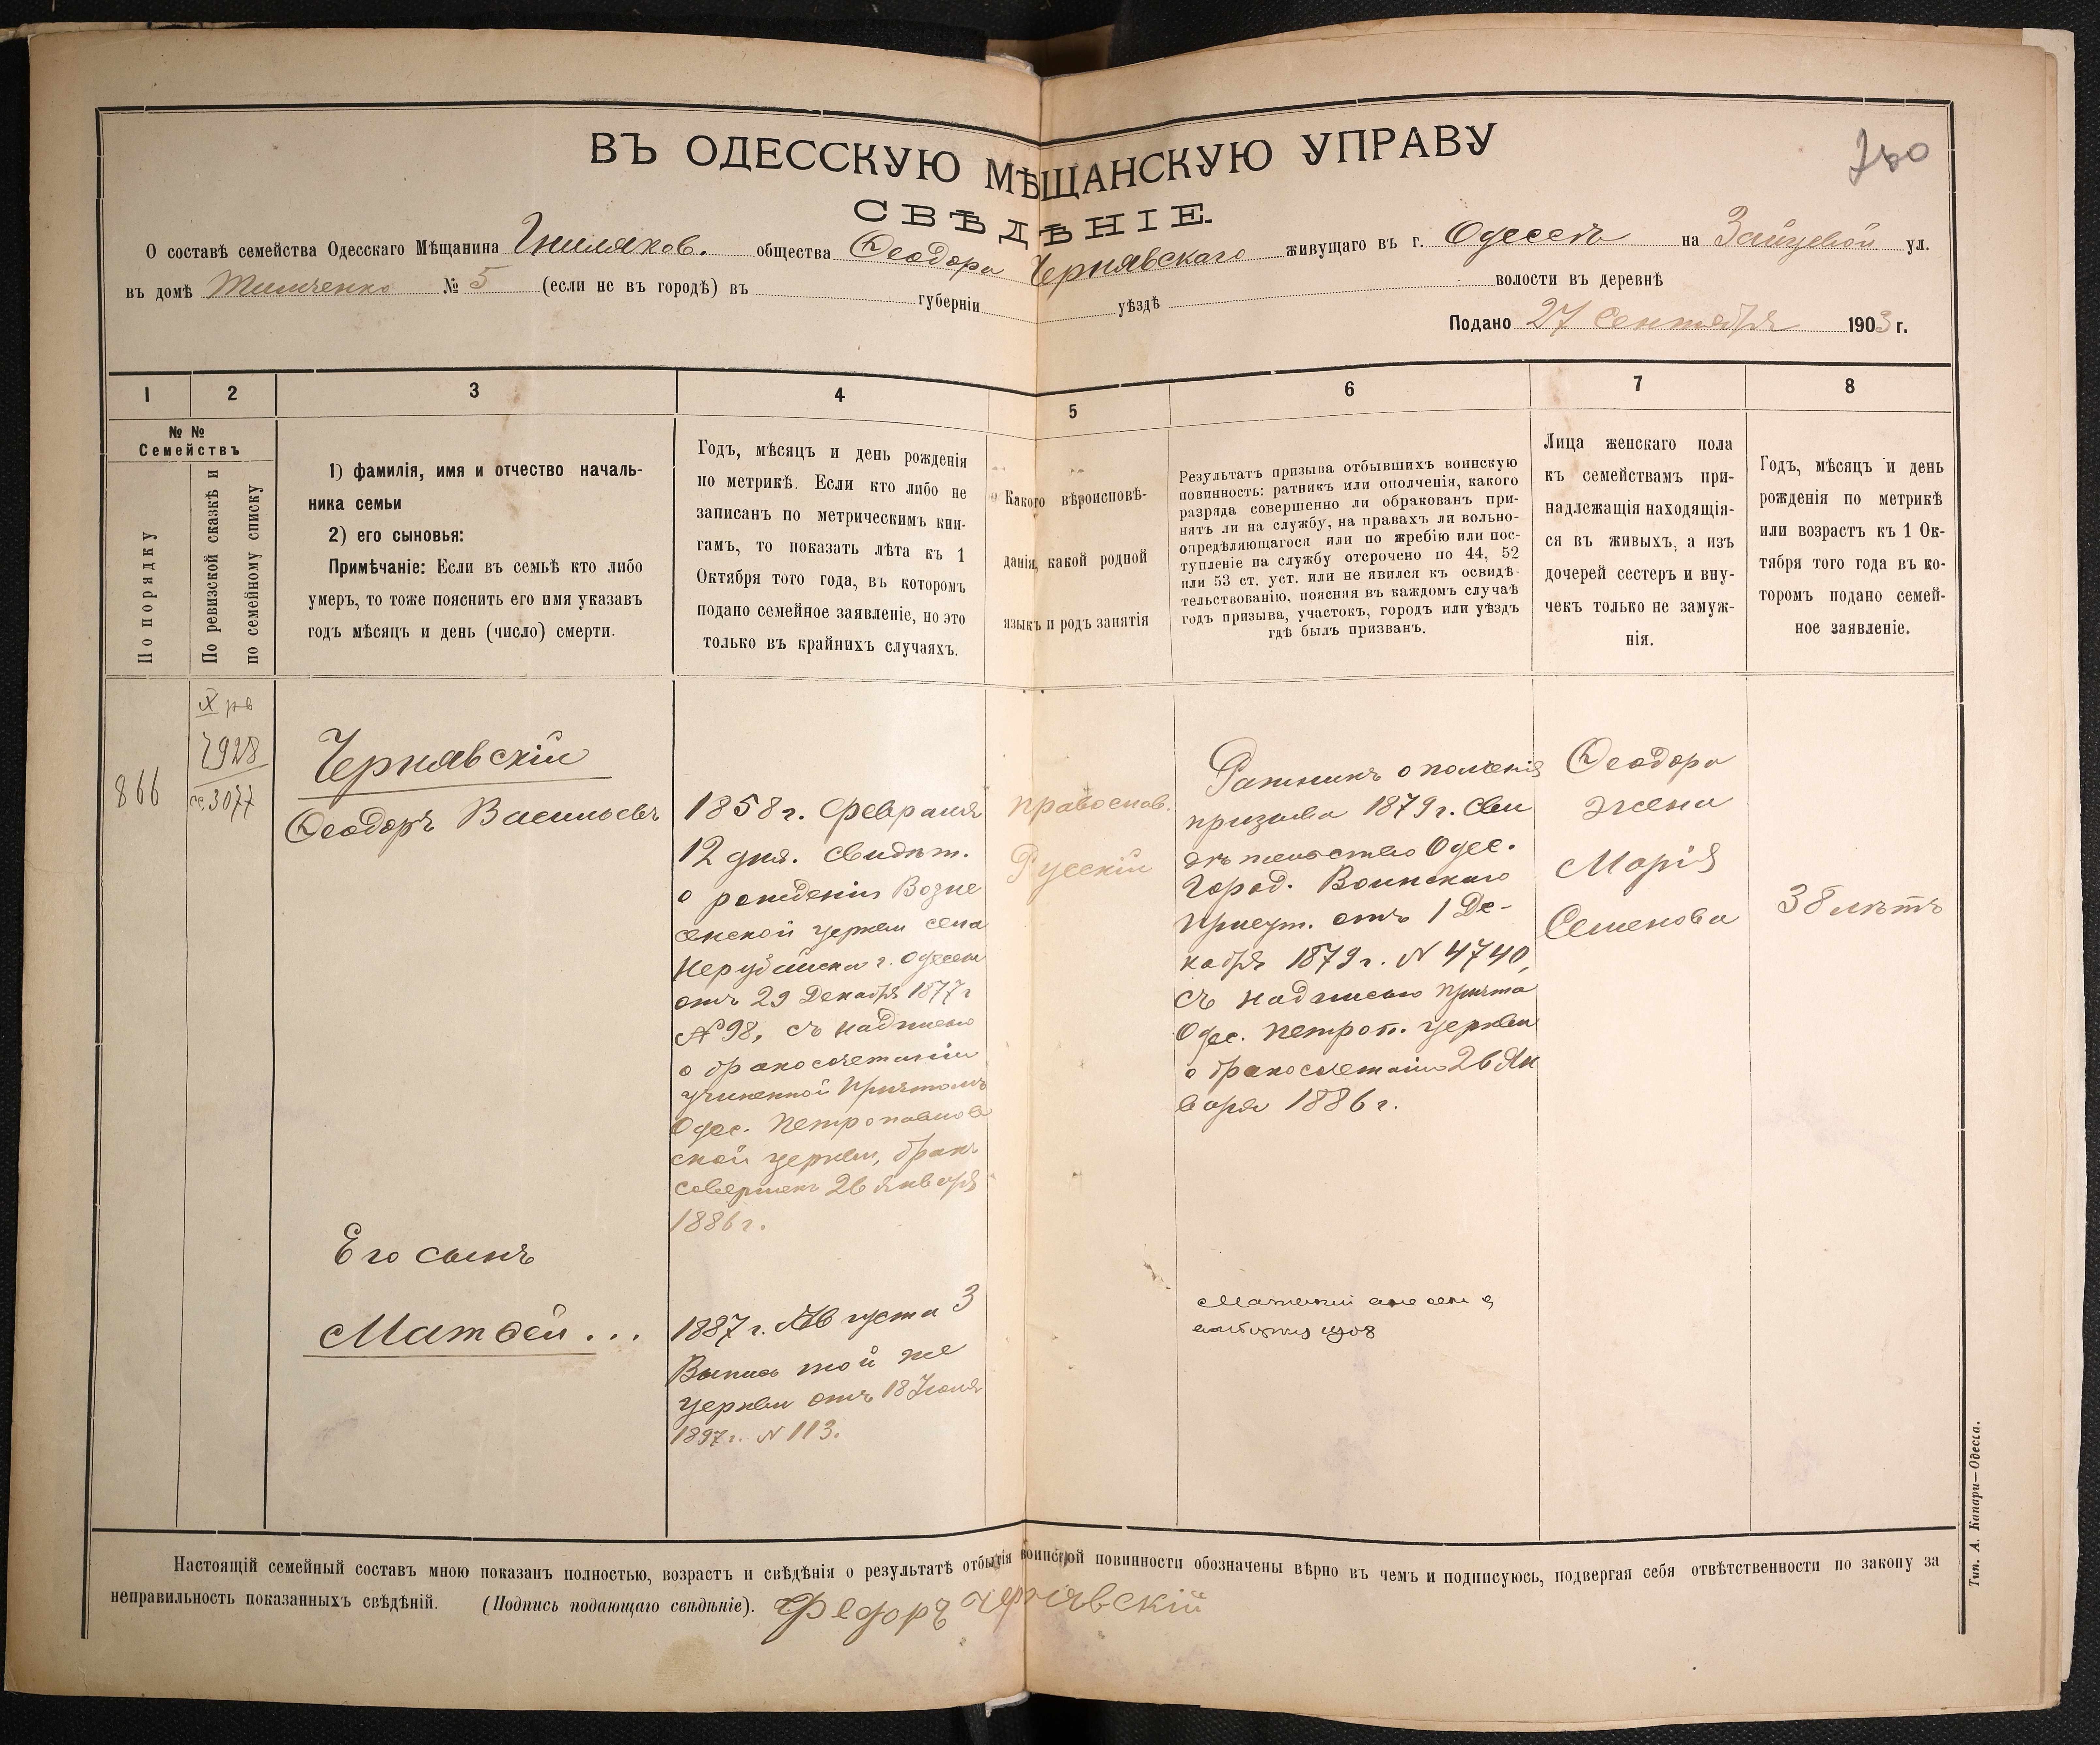 ВЪ ОДЕССКУЮ МѢЩАНСКУЮ УПРАВУ
СВѢДѢНІЕ.
О составѣ семейства Одесскаго Мѣщанина Гниляков. общества Ѳеодора Чернявскаго живущаго въ г. Одессѣ на Зайцевой ул.
въ домѣ Тимченко № 5 (если не въ городѣ) въ губерніи уѣздѣ волости въ деревнѣ
Подано 27 Сентября 1903 г.
1 2 3 4 5 6 7 8
№ №
Семействъ
По порядку
По ревизской сказкѣ и
по семейному списку
1) фамилія, имя и отчество началь-
ника семьи
2) его сыновья:
Примѣчаніе: Если въ семьѣ кто либо
умеръ, то тоже пояснить его имя указавъ
годъ мѣсяцъ и день (число) смерти.
Годъ, мѣсяцъ и день рожденія
по метрикѣ. Если кто либо не
записанъ по метрическимъ кни-
гамъ, то показать лѣта къ 1
Октября того года, въ которомъ
подано семейное заявленіе, но это
только въ крайнихъ случаяхъ.
Какого вѣроисповѣ-
данія, какой родной
языкъ и родъ занятія
Результатъ призыва отбывшихъ воинскую
повинность: ратникъ или ополченія, какого
разряда совершенно ли обракованъ при-
нятъ ли на службу, на правахъ ли вольно-
опредѣляющагося или по жребію или пос-
тупленіе на службу отсрочено по 44, 52
или 53 ст. уст. или не явился къ освидѣ-
тельствованію, поясняя въ каждомъ случаѣ
годъ призыва, участокъ, городъ или уѣздъ
гдѣ былъ призванъ.
Лица женскаго пола
къ семействамъ при-
надлежащія находящія-
ся въ живыхъ, а изъ
дочерей сестеръ и вну-
чекъ только не замуж-
нія.
Годъ, мѣсяцъ и день
рожденія по метрикѣ
или возрастъ къ 1 Ок-
тября того года въ ко-
торомъ подано семей-
ное заявленіе.
866
X рв
7928
сс. 3077
Чернявскій
Ѳеодоръ Васильевъ
1858 г. Февраля
12 дня. Свидѣт.
о рожденіи Возне
сенской церкви села
Нерубайска г. Одессы
отъ 29 Декабря 1877 г
№ 98, съ надписью
о бракосочетаніи
учиненной Причтомъ
Одес. Петропавлов
ской церкви, бракъ
совершенъ 26 Января
1886 г.
православ.
Русскій
Ратникъ ополченія
призыва 1879 г. Сви
дѣтельство Одес.
Город. Воинскаго
Присут. отъ 1 Де-
кабря 1879 г. № 4740,
съ надписью Причта
Одес. Петроп. церкви
о бракосочетаніи 26 Ян
варя 1886 г.
Ѳеодора
жена
Марія
Семенова
38 лѣтъ
Его сынъ
Матвѣй...
1887 г. Августа 3
Выпись той же
церкви отъ 18 Іюля
1897 г. № 113.
1908
Настоящій семейный составъ мною показанъ полностью, возрастъ и свѣдѣнія о результатѣ отбытія воинской повинности обозначены вѣрно въ чемъ и подписуюсь, подвергая себя отвѣтственности по закону за
неправильность показанныхъ свѣдѣній. (Подпись подающаго свѣдѣніе). Федоръ Чернявскій
Тип. А. Капари—Одесса.